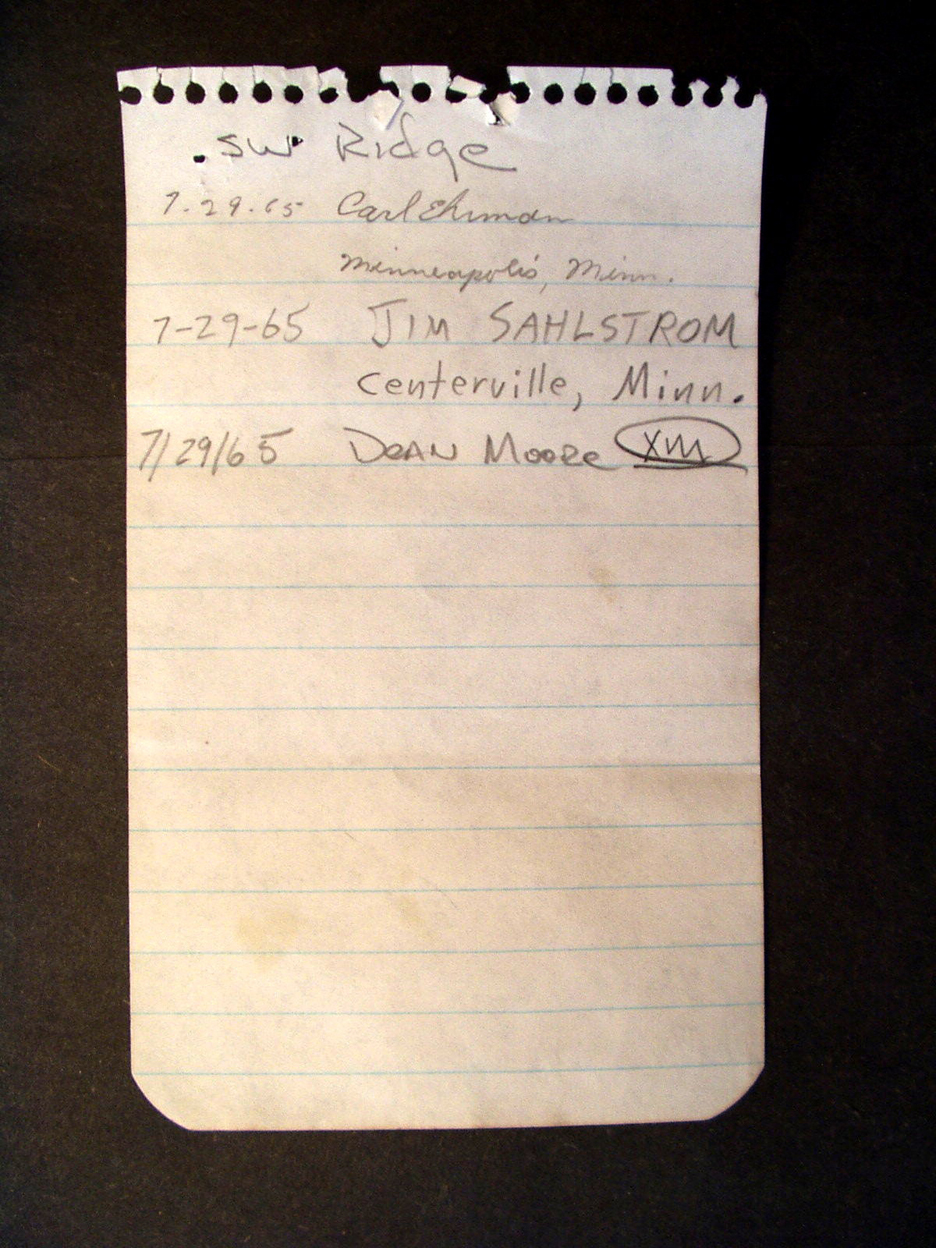 SW Ridge
7.29.65 Carl Ehrman
Minneapolis, Minn.
7-29-65 JIM SAHLSTROM
Centerville, Minn.
7/29/65 DEAN MOORE XIII